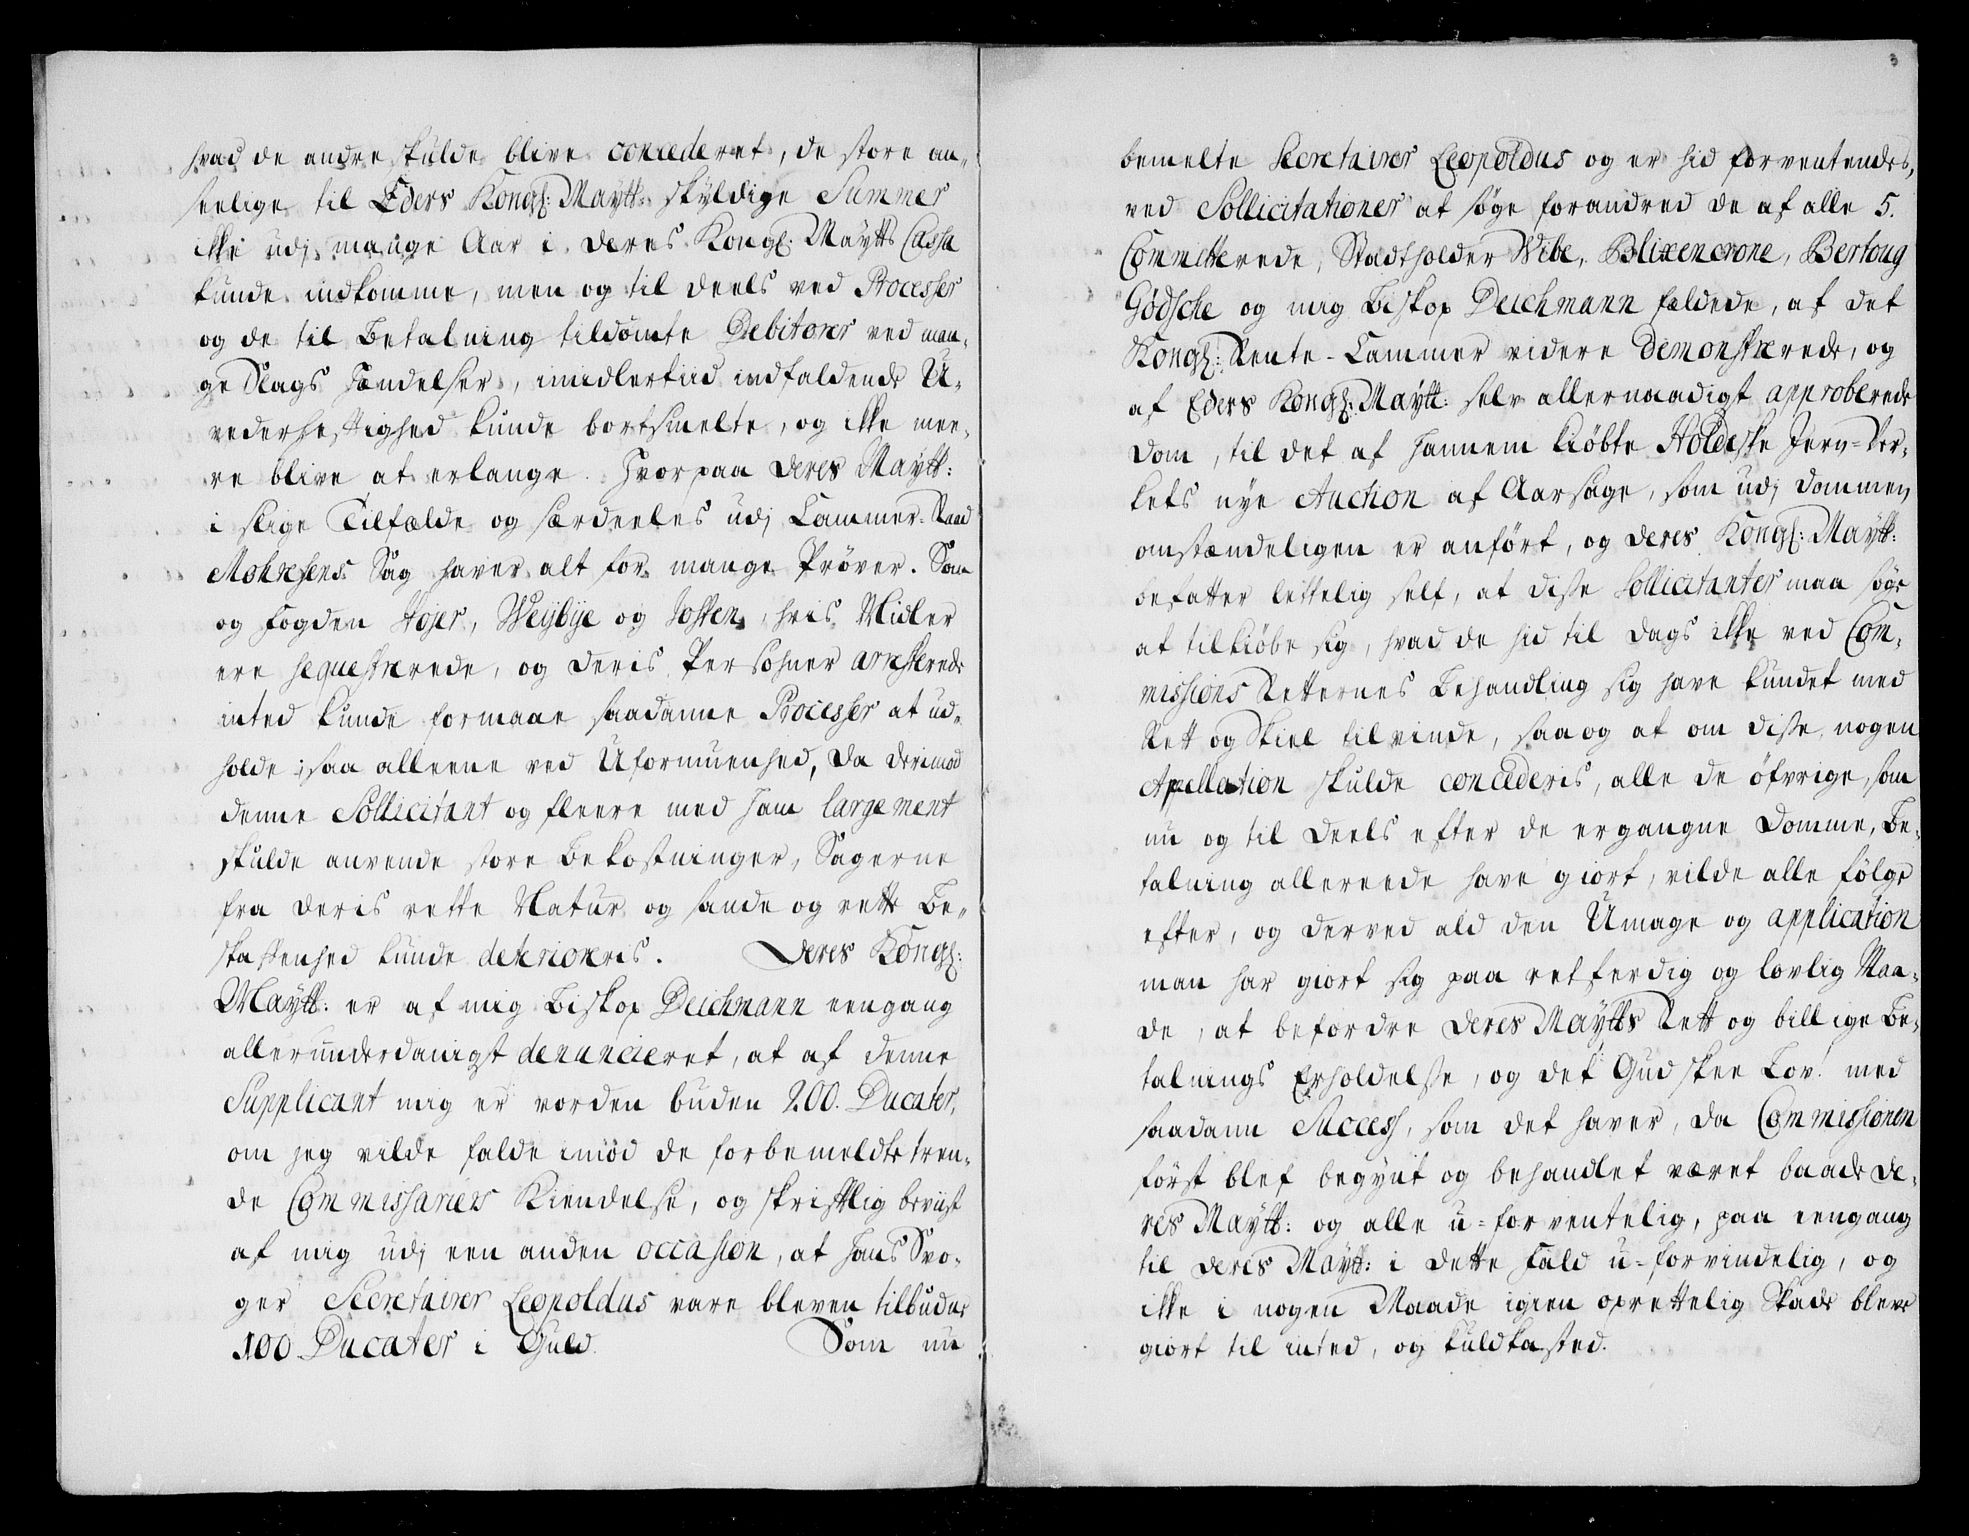 hvad de andre skulde blive concederet, de store an-
seelige til Eders Kongl: Maytt: skyldige Summer
ikke udj mange Aar i deres Kongl: Maytts Cassa
kunde indkomme, men og til deels ved Processer
og de til Betalning tildömte Debitorer ved man-
ge Slags Hændelser, imidlertiid indfaldende U-
vederheftighed kunde bortsmelte, og ikke mee-
re blive at erlange. Hvorpaa deres Maytt:
i slige Tilfælde og særdeeles udj Cammer-Raad
Mohrsens Sag haver alt for mange Pröver. Som
og Fogden Höjer, Weybye og Josten, hvis Midler
ere seqvestrerede, og deris Persohner arresterede
inted kunde formaae saadanne Processer at ud-
holde; saa alleene ved Uformuenhed, da derimod
denne Sollicitant og fleere med ham largement
skulde anvende store Bekostninger, Sagerne
fra deris rette Natur og sande og rette Be-
skaffenhed kunde deterioreris. Deres Kongl:
Maytt: er af mig Biskop Deichmann eengang
allerunderdanigst denuncieret, at af denne
Supplicant mig er vorden buden 200. Ducater,
om jeg vilde falde imod de forbemeldte tren-
de Commissariers Kiendelse, og skriftlig beviist
af mig udj een anden occasion, at hans Svo-
ger Secretairer Leopoldus vare bleven tilbudne
100 Ducater i Guld. Som nu
3
bemelte Secretairer Leopoldus og er hid forventendes,
ved Sollicitationer at söge forandred de af alle 5.
Committerede, Stadtholder Wibe, Blixencrone, Bertoug
Gödsche og mig Biskop Deichmann fældede, af det
Kongl: Rente-Cammer videre demonstrerede, og
af Eders Kongl: Maytt: selv allernaadigst approberede
Dom, til det af hannem kiöbte Holdeske Jern-Ver-
kets nye Auction af Aarsage, som udj Dommen
omstændeligen er anfört, og deres Kongl: Maytt:
befatter lettelig self, at disse Sollicitanter maa söge
at tilkiöbe sig, hvad de hid til dags ikke ved Com-
missions Retternes Behandling sig have kundet med
Rett og Skiel tilvinde, saa og at om disse nogen
Apellation skulde concederis, alle de öfvrige, som
nu og til deels efter de ergangne Domme, Be-
talning allereede have giort, vilde alle fölge
efter, og derved ald den Umage og application
man har giort sig paa retferdig og lovlig Maa-
de, at befordre deres Maytts Rett og billige Be-
talnings Erholdelse, og det Gud skee Lov! med
saadann Success, som det haver, da Commissionen
först blef begynt og behandlet været baade de-
res Maytt: og alle u-forventelig, paa eengang
til deres Maytt: i dette Fald u-forvindelig, og
ikke i nogen Maade igien oprettelig Skade bleve
giort til inted, og kuldkasted.